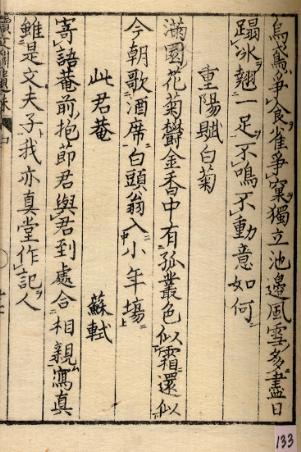 烏鳶爭食雀爭窠獨立池邊風雪多盡日
蹋氷翹一足不鳴不動意如何
重陽賦白菊
滿園花菊鬱金香中有孤叢色似霜還似
今朝歌酒席白頭翁入小年塲
此君菴 蘇軾
寄語菴前抱節君與君到處合相親寫真
雖是文夫子我亦真堂作記人
133